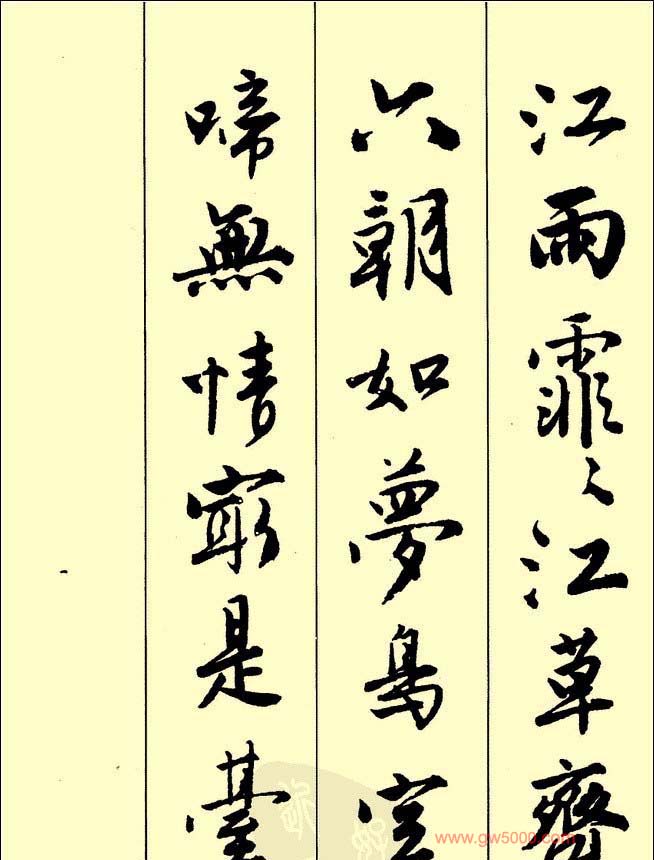 江雨霏々江草齊
六朝如夢鳥空
啼無情㝡是臺
www.gw5000.com